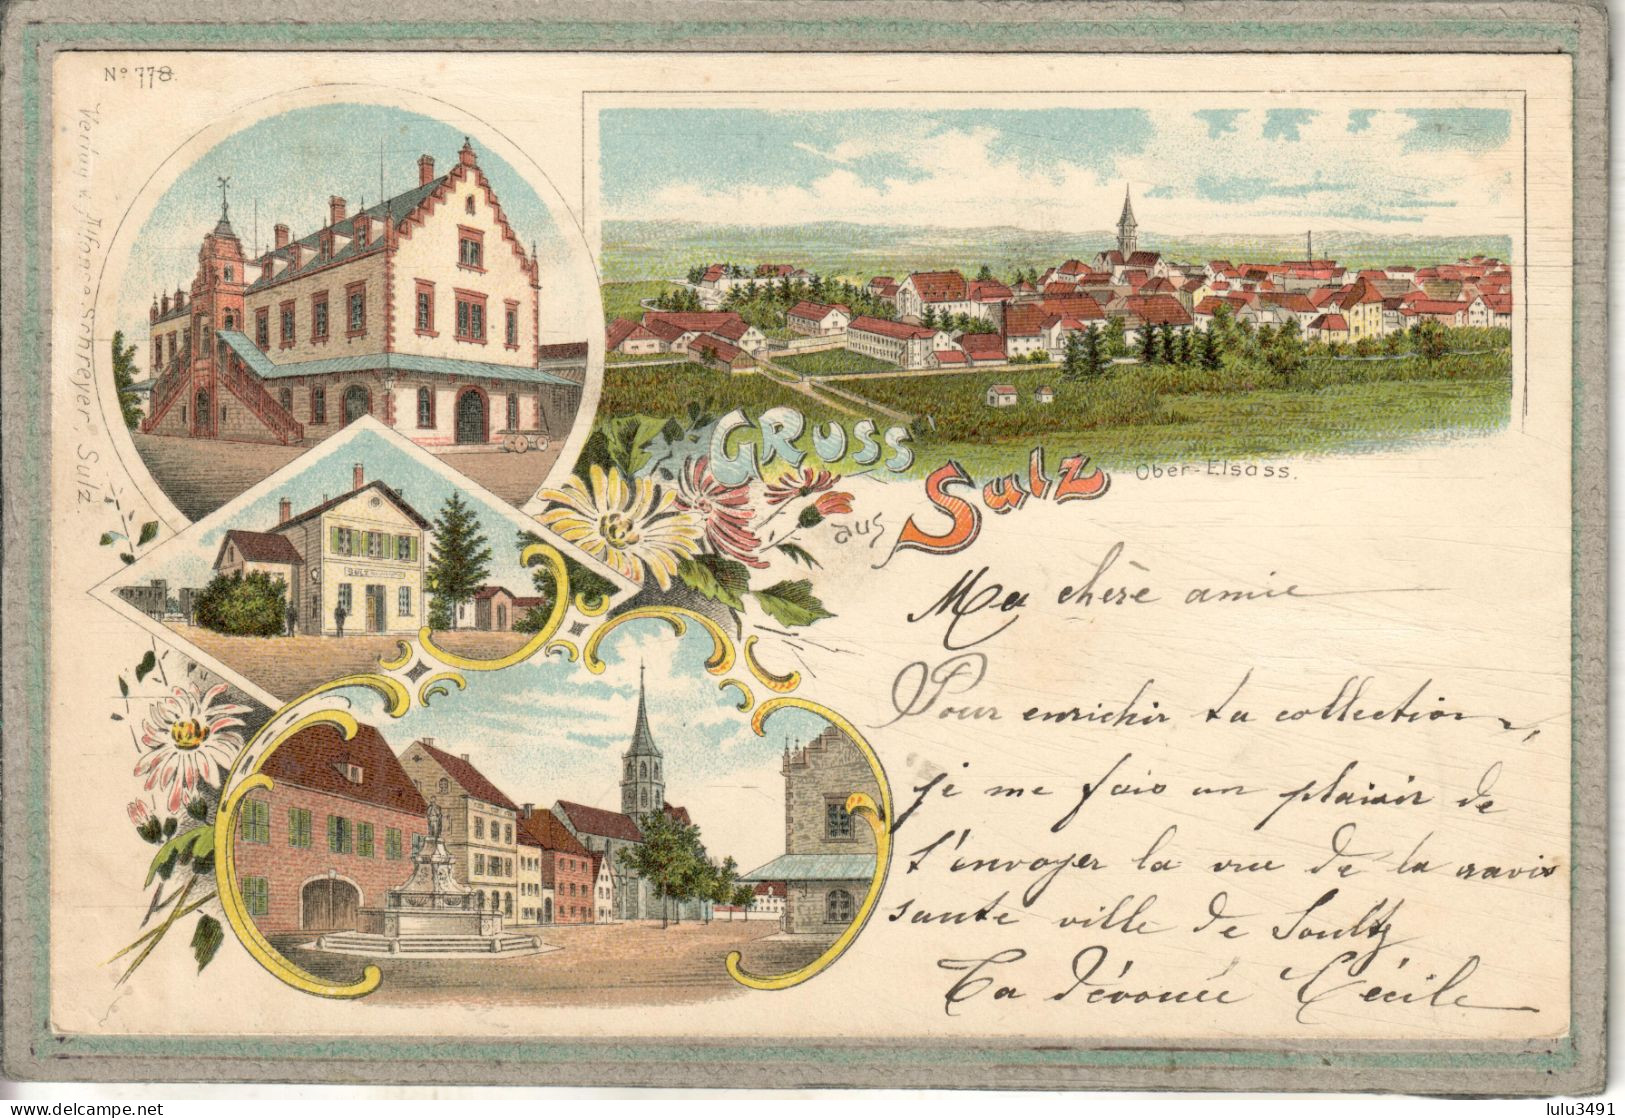 N° 778.
Verlag v. Alfonse Schreyer, Sulz.
GRUSS
aus Sulz
Ober-Elsass.
SULZ
Ma chère amie
Pour enrichir ta collection,
je me fais un plaisir de
t'envoyer la vue de la ravis
sante ville de Soultz
Ta dévouée Cécile
delcampe.net
lulu3491